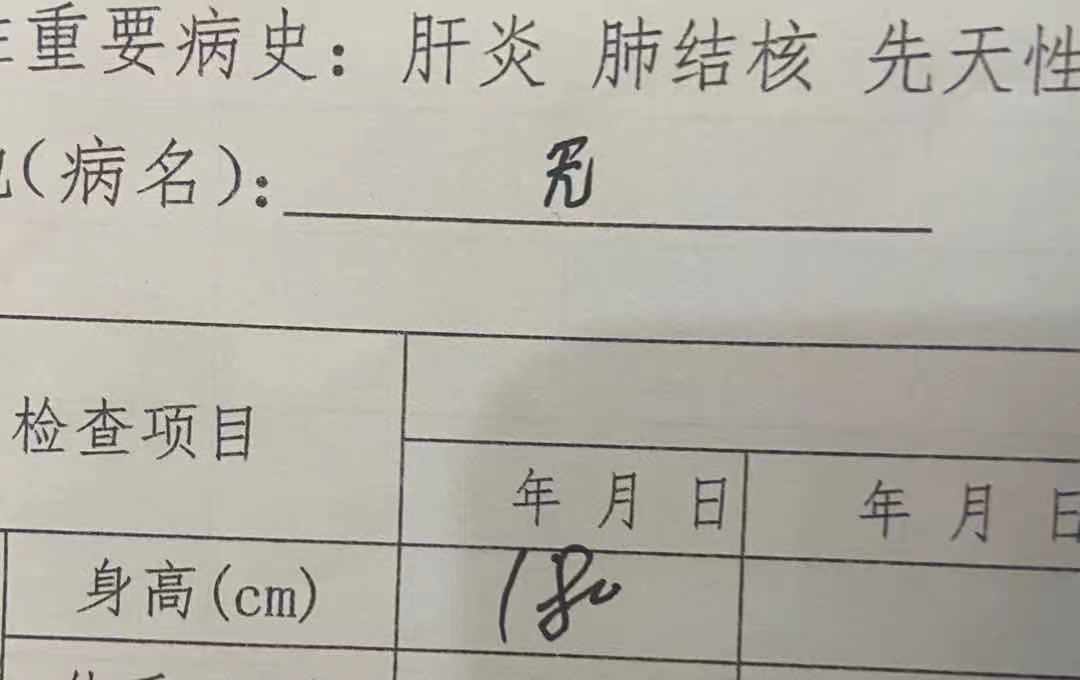 重要病史：肝炎 肺结核 先天性
(病名)：无
检查项目
年 月 日 年 月 日
身高(cm) 180